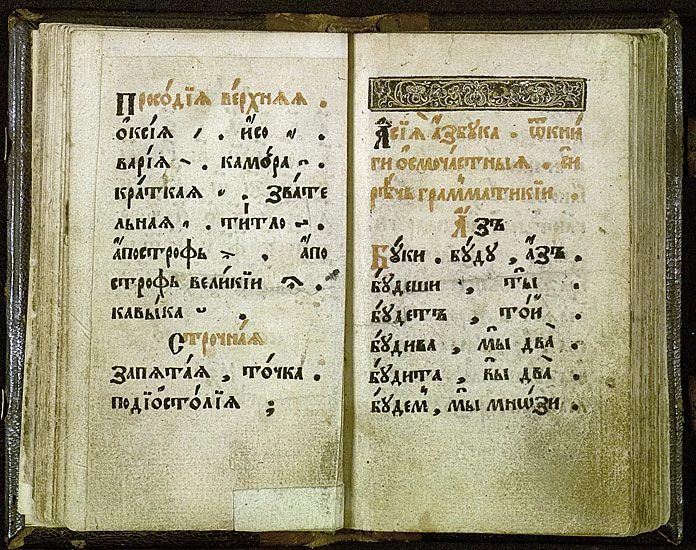 Просо́дїѧ ве́рхнѧѧ .
ѻ҆ксі́ѧ ҆ . и҆́со ҆ .
варі́ѧ ҆ . камо́ра ҆ .
кра́ткаѧ ҆ . зва́те
льнаѧ . ти́тло ҃ .
а҆по́строфъ . а҆по
строфъ вели́кїи .
кавы́ка .
Стро́чнаѧ
запѧта́ѧ , то́чка .
подїѻсто́лїѧ ;
А҆сїѧ̀ а҆́збꙋка . ѿкни́
ги ѻ҆смоча́стныѧ . си́
рѣчь грамма́тикїи .
А҆́зъ
Бꙋ́ки . бꙋ́дꙋ , а҆́зъ .
бꙋ́деши , ты̀ .
бꙋ́детъ , то́й .
бꙋ́дива , мы̀ два̀ .
бꙋ́дита , вы̀ два̀ .
бꙋ́дем , мы̀ мнѡ́зи .